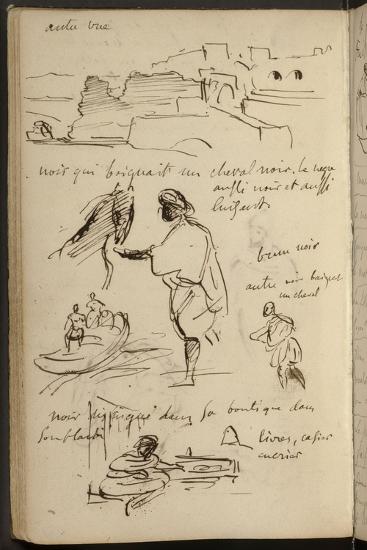 autre vue
noir qui baignait un cheval noir. le negre
aussi noir et aussi
luisant.
brun noir
autre noir baignt
un cheval
noir dans sa boutique dans
livres, casier
encrier